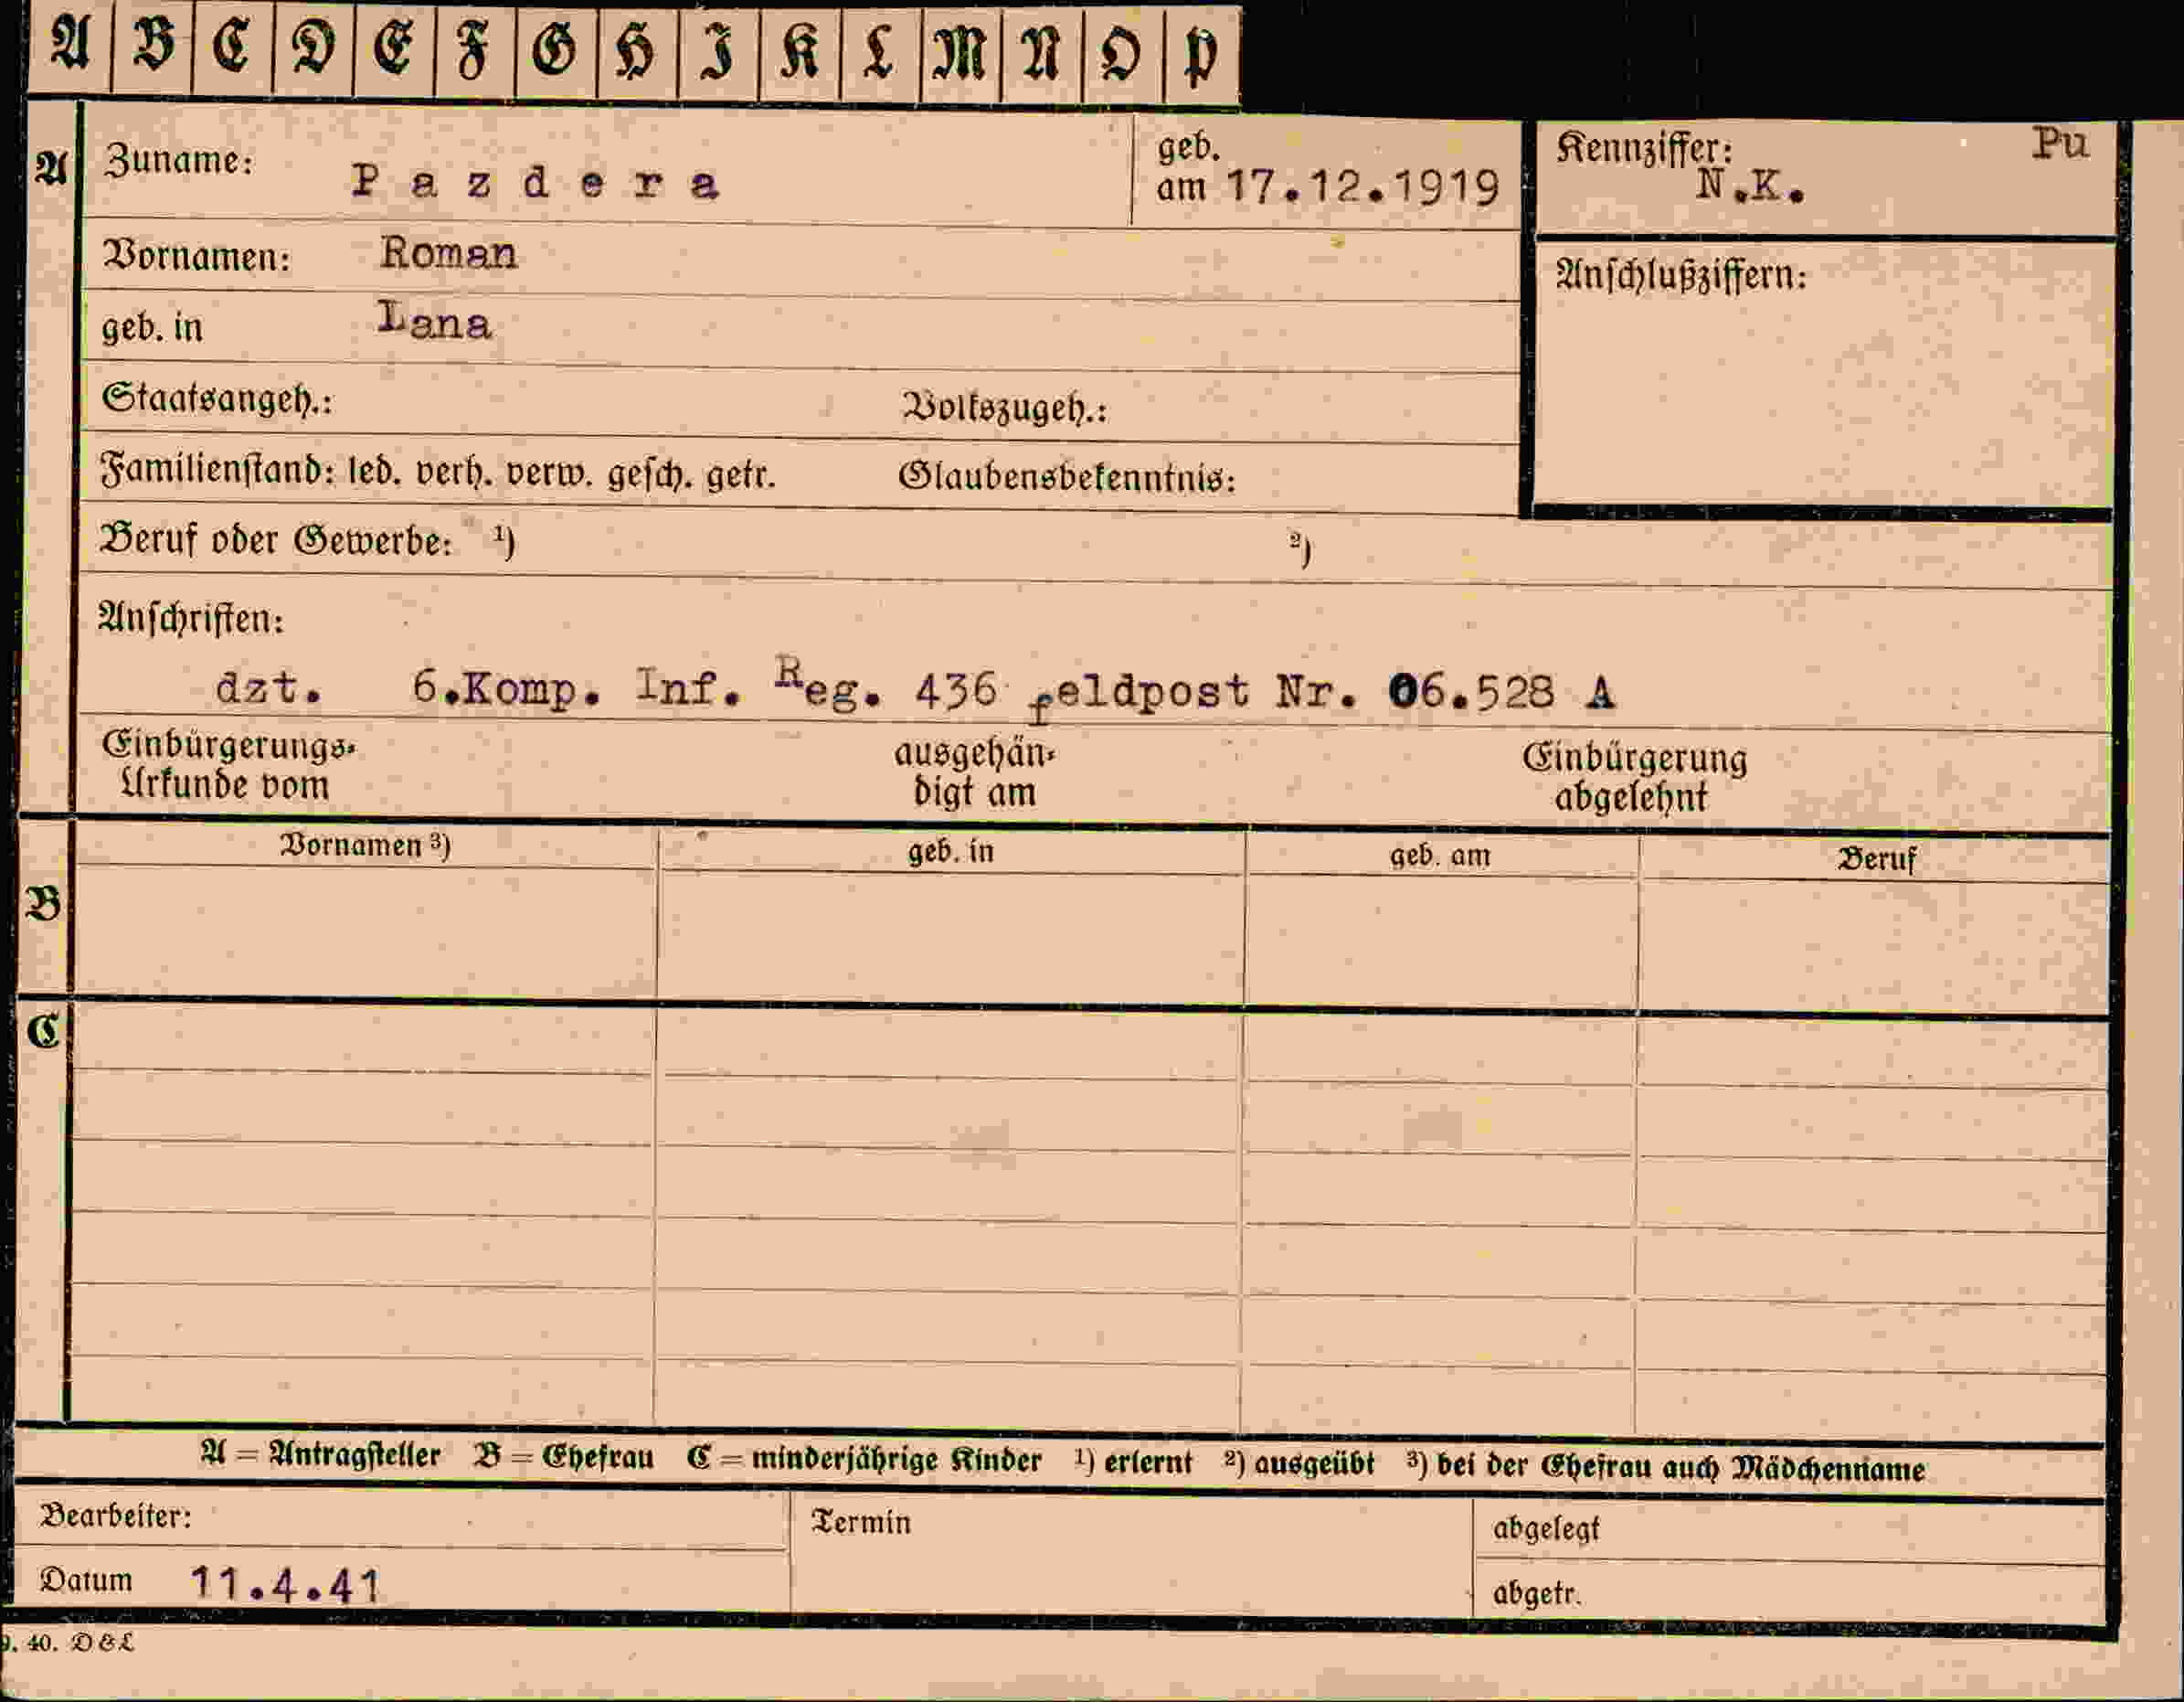 A B C D E F G H I K L M N O P
A Zuname: Pazdera geb. am 17.12.1919 Kennziffer: N.K. Pu
Vornamen: Roman Anschlußziffern:
geb. in Lana
Staatsangeh.: Volkszugeh.:
Familienstand: led. verh. verw. gesch. getr. Glaubensbekenntnis:
Beruf oder Gewerbe: ¹) ²)
Anschriften:
dzt. 6.Komp. Inf. Reg. 436 feldpost Nr. 06.528 A
Einbürgerungs- ausgehän- Einbürgerung
Urkunde vom digt am abgelehnt
Vornamen ³) geb. in geb. am Beruf
B
C
A = Antragsteller B = Ehefrau C = minderjährige Kinder ¹) erlernt ²) ausgeübt ³) bei der Ehefrau auch Mädchenname
Bearbeiter: Termin abgelegt
Datum 11.4.41 abgetr.
9. 40. D & L